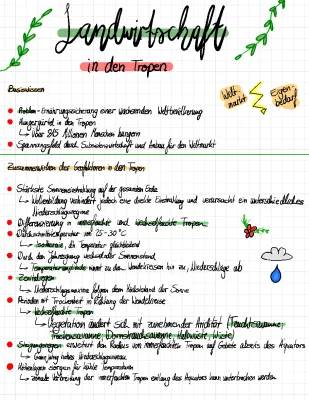 Landwirtschaft
in den Tropen
Basiswissen
Weltmarkt
Eigenbedarf
Problem - Ernährungssicherung einer wachsenden Weltbevölkerung
Hungergürtel in den Tropen
↳ Über 815 Millionen Menschen hungern
Spannungsfeld durch Subsistenzwirtschaft und Anbau für den Weltmarkt
Zusammenwirken der Geofaktoren in den Tropen
Stärkste Sonneneinstrahlung auf der gesamten Erde
↳ Wolkenbildung verhindert jedoch eine direkte Einstrahlung und verursacht ein unterschiedliches
Niederschlagsregime
Differenzierung in immerfeuchte und wechselfeuchte Tropen
Durchschnittstemperatur von 25-30°C
↳ Isothermie, die Temperatur gleichbleibend
Durch den Jahresgang verläuft der Sonnenstand
↳ Temperaturamplitude nimmt zu den Wendekreisen hin zu, Niederschläge ab
Zenitalregen
↳ Niederschlagsmaxima folgen dem Höchststand der Sonne
Perioden mit Trockenheit in Richtung der Wendekreise
↳ Wechselfeuchte Tropen
↳ Vegetation ändert sich mit zunehmender Aridität (Feuchtsavanne,
Trockensavanne, Dornstrauchsavanne, Halbwüste, Wüste)
Steigungsregen erweitert den Radius von immerfeuchten Tropen auf Gebiete abseits des Äquators
↳ Ganzjährig hohes Niederschlagsniveau
Höhenlagen sorgen für kühle Temperaturen
↳ zonale Verbreitung der immerfeuchten Tropen entlang des Äquators kann unterbrochen werden